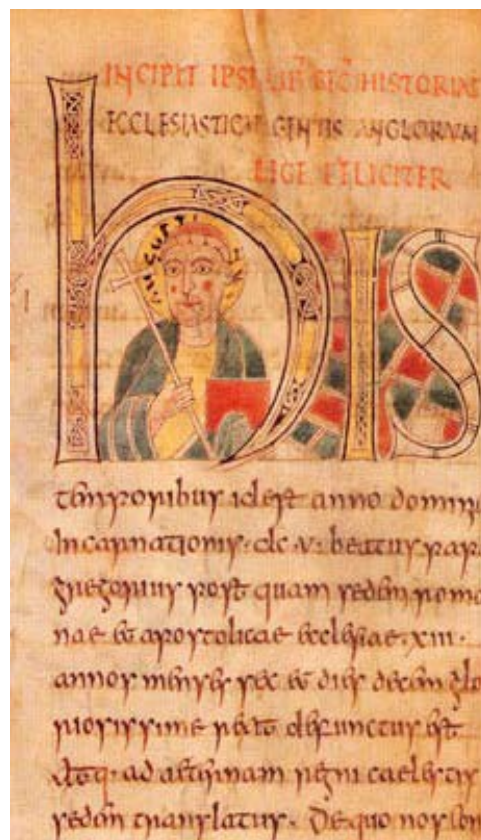 INCIPIT IPSE LIB SEC HISTORIAE
ECCLESIASTICAE GENTIS ANGLORUM
LEGE FELICITER
AUGUSTI
hIS
temporibus id est anno domini
Incarnationis · dc · v · beatus pap
gregorius post quam sedem roma
nae et apostolicae ecclesiae · xiii ·
annos menses sex et dies decem glo
riosissime rexit defunctus est
atq · ad aeternam regni caelestis
sedem translatus · De quo nos con